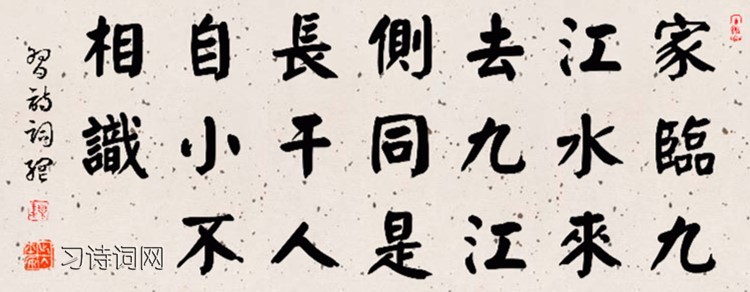 家臨九
江水來
去九江
側同是
長干人
自小不
相識
習詩詞網
习诗词网